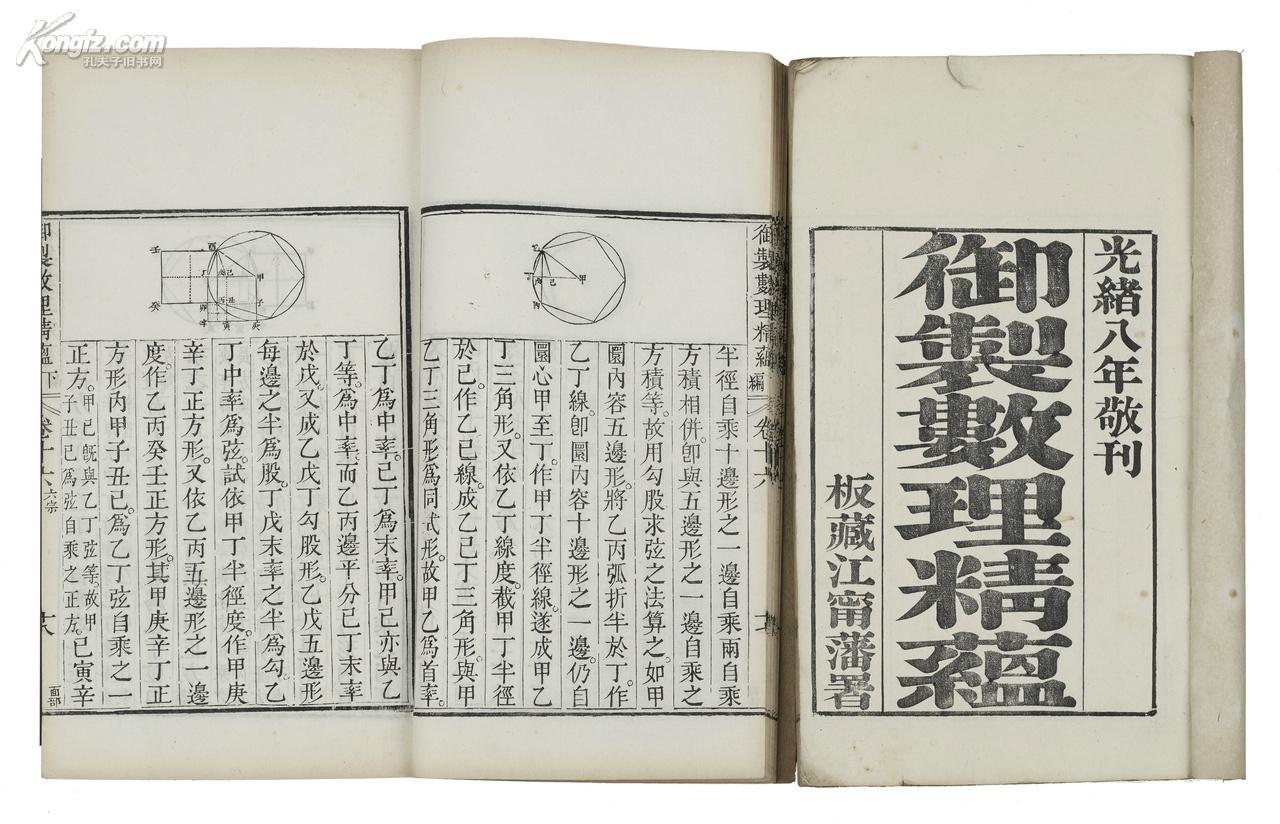 Kongfz.com
孔夫子旧书网
光緒八年敬刊
御製數理精蘊
板藏江甯藩署
御製數理精蘊
下編
卷十六
半徑自乘十邊形之一邊自乘兩自乘
方積相併卽與五邊形之一邊自乘之
方積等故用勾股求弦之法算之如甲
圜內容五邊形將乙丙弧折半於丁作
乙丁線卽圜內容十邊形之一邊仍自
圜心甲至丁作甲丁半徑線遂成甲乙
丁三角形又依乙丁線度截甲丁半徑
於己作乙己線成乙己丁三角形與甲
乙丁三角形爲同式形故甲乙爲首率
乙
丁
丙
己
甲
乙丁爲中率己丁爲末率甲己亦與乙
丁等爲中率而乙丙邊平分己丁末率
於戊又成乙戊丁勾股形乙戊五邊形
每邊之半爲股丁戊末率之半爲勾乙
丁中率爲弦試依甲丁半徑度作甲庚
辛丁正方形又依乙丙五邊形之一邊
度作乙丙癸壬正方形其甲庚辛丁正
方形內甲子丑己爲乙丁弦自乘之一
正方甲己旣與乙丁弦等故甲
子丑己爲弦自乘之正方己寅辛
壬
癸
甲
子
御製數理精蘊
下
卷十六
六宗
面部